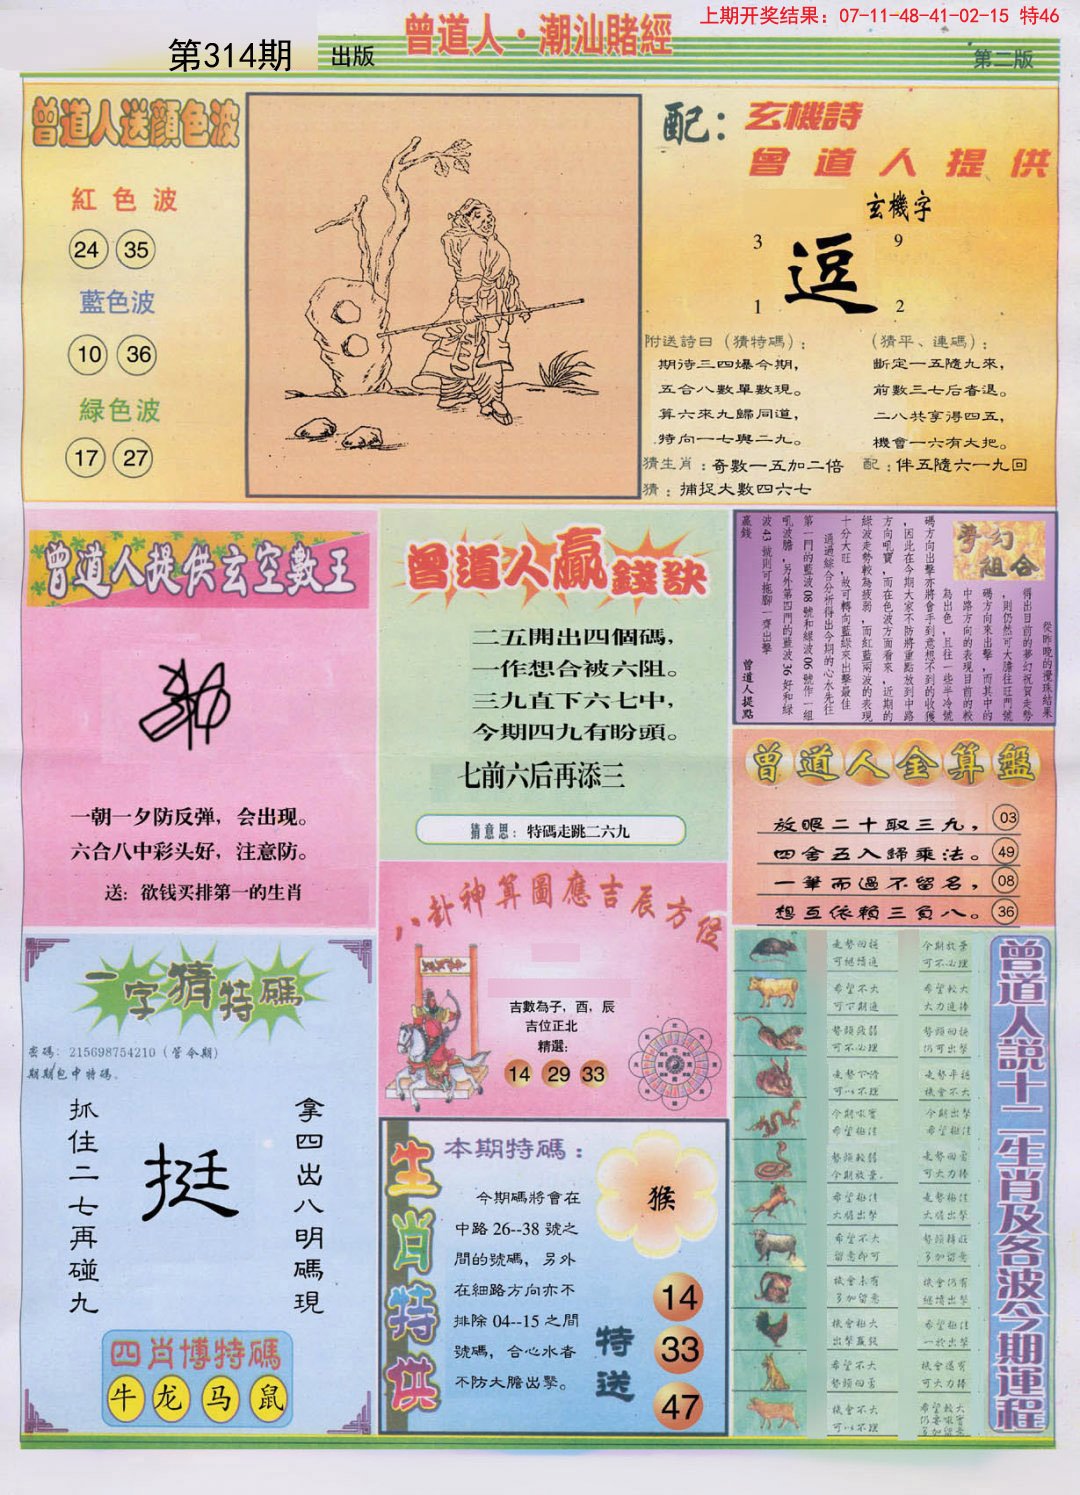 上期开奖结果：07-11-48-41-02-15 特46
第314期
出版
曾道人·潮汕賭經
第二版
曾道人送顏色波
紅色波
24 35
藍色波
10 36
緑色波
17 27
配：
玄機詩
曾道人提供
玄機字
3 9
逗
1 2
附送詩曰（猜特碼）：
期待三四爆今期，
五合八數單數現。
算六來九歸同道，
特向一七與二九。
猜生肖：奇數一五加二倍
猜：捕捉大數四六七
（猜平、連碼）：
斷定一五隨九來，
前數三七后香退。
二八共享得四五，
機會一六有大把。
配：伴五隨六一九回
曾道人提供玄空數王
一朝一夕防反弹，会出现。
六合八中彩头好，注意防。
送：欲钱买排第一的生肖
曾道人贏錢訣
二五開出四個碼，
一作想合被六阻。
三九直下六七中，
今期四九有盼頭。
七前六后再添三
猜意思：特碼走跳二六九
夢幻組合
從昨晚的攪珠結果
得出目前的夢幻祝賀走勢
，則仍然可大膽往旺門號
碼方向來出擊，而其中的
中路方向的表現目前的較
為出色，且往一些半冷號
碼方向出擊亦將會手到意想不到的收獲
，因此在今期大家不防將重點放到中路
方向吼寶，而在色波方面看來，近期的
綠波走勢較為疲弱，而紅藍兩波的表現
十分大旺，故可轉向藍綠來出擊最佳
通過綜合分析得出今期的心水先往
第一門的藍波08號和綠波06號作一組
吼波膽，另外第四門的藍波36好和綠
波43號則可拖腳一齊出擊
贏錢
曾道人提點
曾道人金算盤
放眼二十取三九， 03
四舍五入歸乘法。 49
一筆而過不留名， 08
想互依賴三負八。 36
八卦神算圖應吉辰方位
吉數為子，酉，辰
吉位正北
精選：
14 29 33
一字猜特碼
密碼：215698754210（管令期）
期期包中特碼。
抓住二七再碰九
挺
拿四出八明碼現
四肖博特碼
牛 龙 马 鼠
生肖特供
本期特碼：
今期碼將會在
中路26--38號之
間的號碼，另外
在細路方向亦不
排除04--15之間
號碼，合心水者
不防大膽出擊。
猴
特送
14
33
47
曾道人說十二生肖及各波今期運程
走勢回穩
可繼續追
今期放棄
可不必理
希望不大
可下期追
希望較大
大力追捧
勢頭疲弱
可不必理
勢頭回穩
仍可出擊
走勢下滑
可以不理
走勢平穩
機會不大
今期吼實
希望極佳
今期出擊
希望極佳
勢頭較弱
今期放棄
走勢回勇
可大力捧
希望極佳
大膽出擊
走勢極佳
大膽出擊
希望不大
留意即可
勢頭轉旺
多加留意
機會未有
多加留意
機會仍有
繼續出擊
機會極大
出擊贏錢
希望極佳
一於出擊
希望不大
勢頭回勇
機會還有
可大力捧
機會不大
可以不理
希望較大
仍要吼實
多加留意